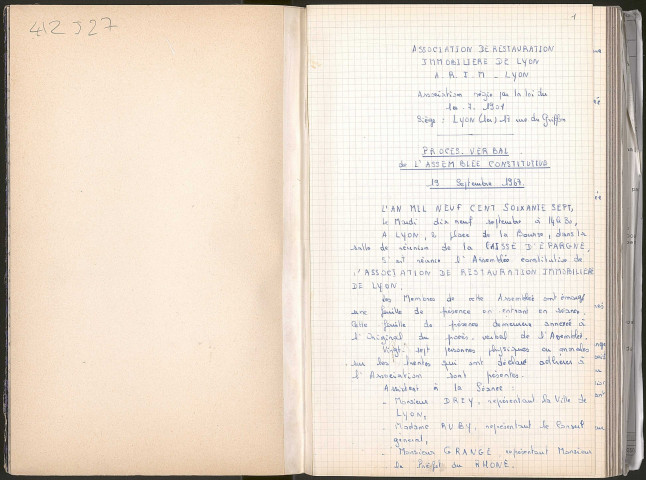 412 J 27
1
ASSOCIATION DE RESTAURATION
IMMOBILIERE DE LYON
A. R. I. M - LYON
Association régie par la loi du
1er. 7. 1901
Siège : LYON (1er) 17 rue du Griffon
PROCES. VERBAL
de L'ASSEMBLEE CONSTITUTIVE
19 Septembre 1967
L'AN MIL NEUF CENT SOIXANTE SEPT,
le Mardi dix neuf septembre à 14h30,
A LYON, 2 place de la Bourse, dans la
salle de réunion de la CAISSE D'EPARGNE,
s'est réunie l'Assemblée constitutive de
L'ASSOCIATION DE RESTAURATION IMMOBILIERE
DE LYON.
Les Membres de cette Assemblée ont émargé
une feuille de présence en entrant en séance.
Cette feuille de présence demeurera annexée à
l'Original du procès. verbal de l'Assemblée.
Vingt. sept personnes physiques ou morales
sur les trentes qui ont déclaré adhérer à
l'Association sont présentes.
Assistent à la Séance :
- Monsieur DREY, représentant la Ville de
LYON,
- Madame RUBY, représentant le Conseil
général,
- Monsieur GRANGE représentant Monsieur
le Préfet du RHONE.